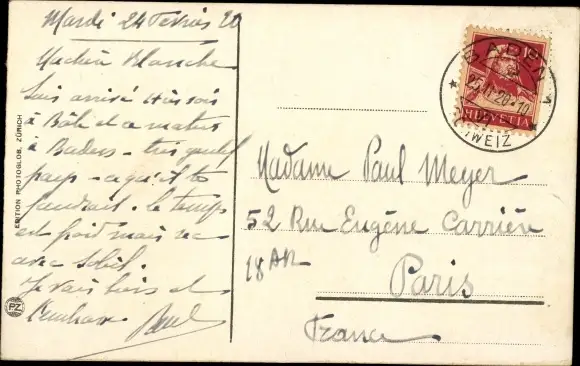 Mardi 24 Février 20
Ma chère Blanche
Suis arrivé hier soir
à Bâle et ce matin
à Baden - très gentil
pays - ce qu'il te
faudrait. le temps
est froid mais sec
avec soleil.
Je vais bien et
t'embrasse Paul
EDITION PHOTOGLOB, ZÜRICH
PZ
BADEN 1
24.II.20-10
SCHWEIZ
HELVETIA
Madame Paul Meyer
52 Rue Eugène Carrière
18 AR
Paris
France